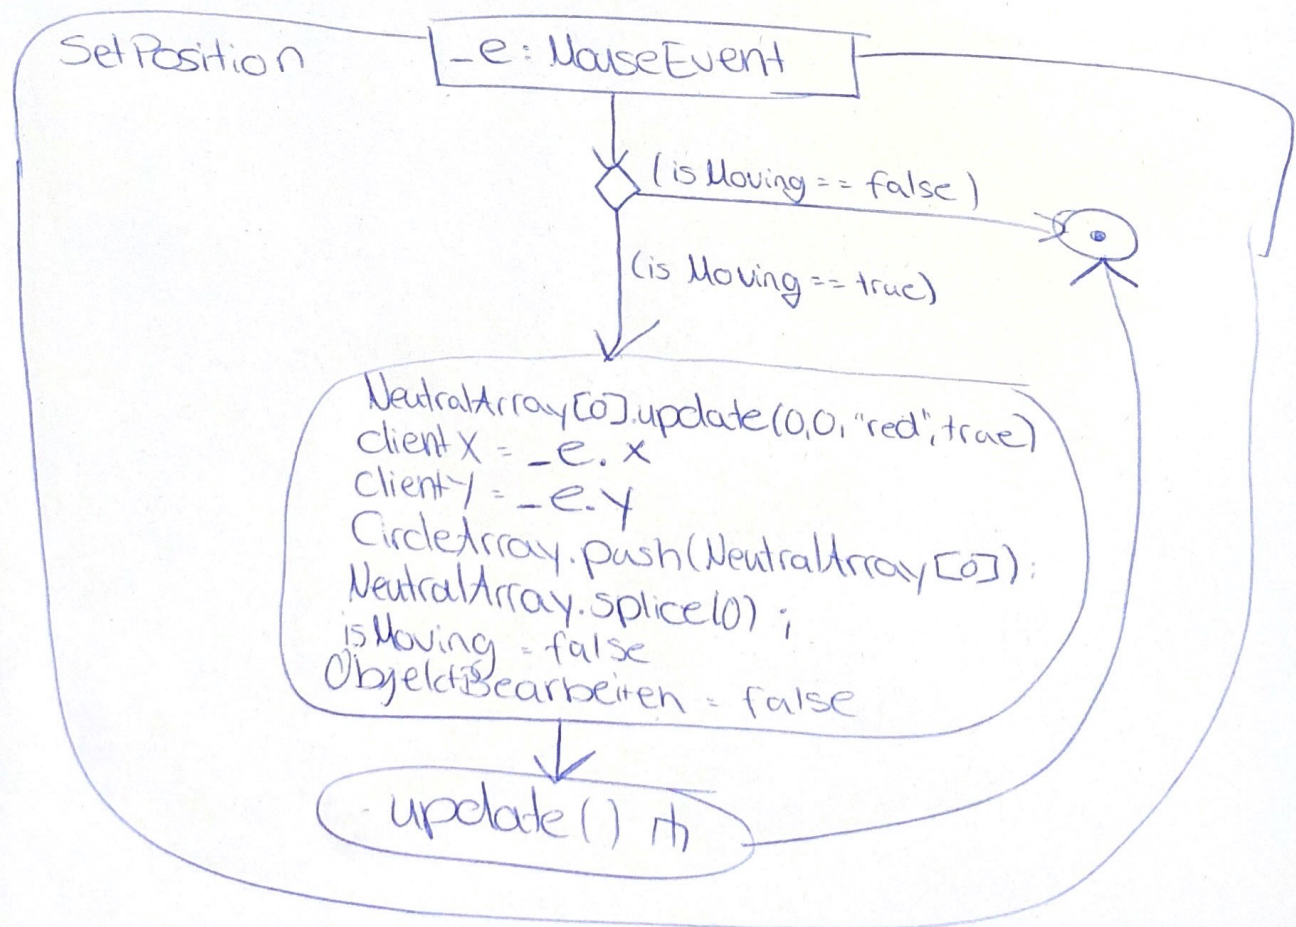 SetPosition
_e: MouseEvent
(isMoving == false)
(is Moving == true)
NeutralArray[0].update(0,0,"red",true)
clientX = _e.x
clientY = _e.y
CircleArray.push(NeutralArray[0]);
NeutralArray.splice(0);
isMoving = false
ObjektBearbeiten = false
update()